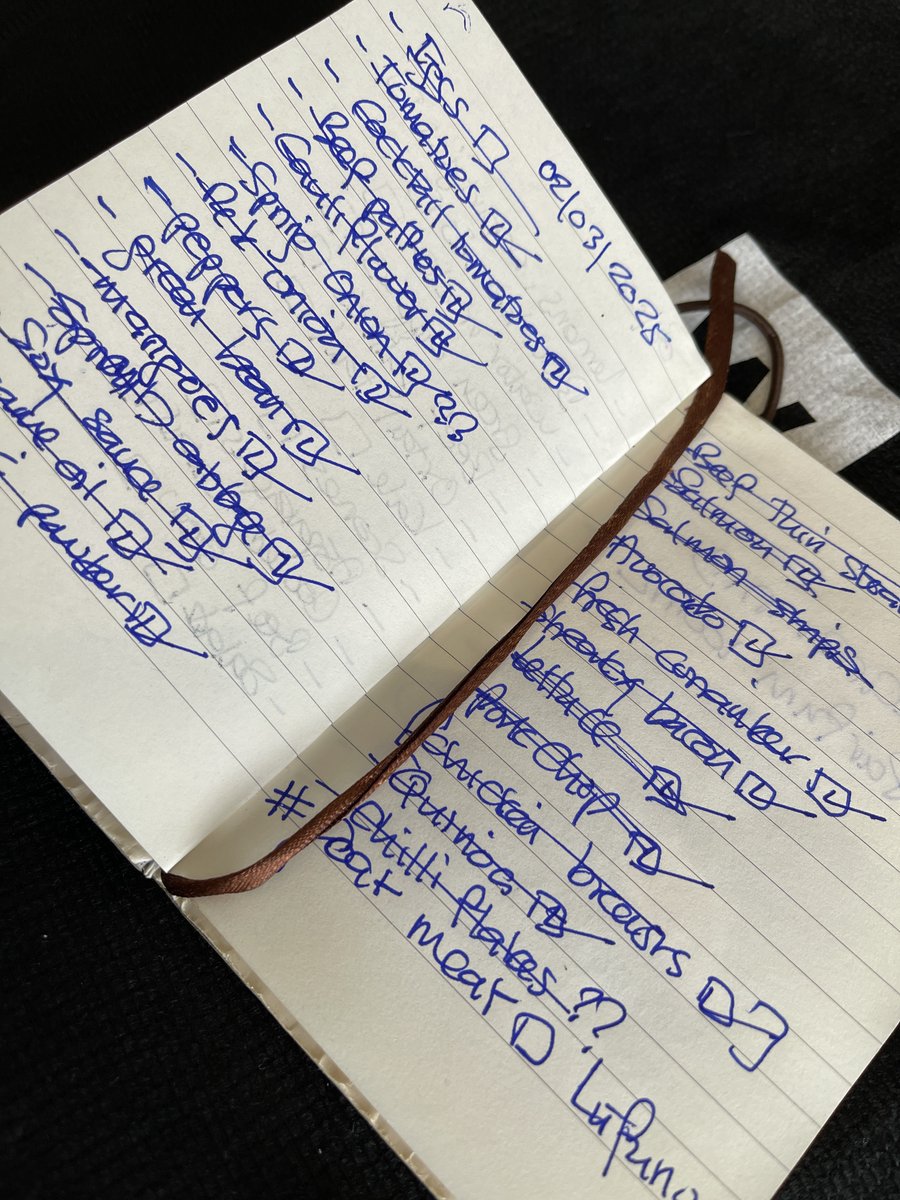 02/03/2025
- Eggs
- tomatoes
- Cocktail tomatoes
- Beef patties
- Cauliflower
- Spring onion
- Red onion
- peppers
- green beans
- mangoes
- Cabbage
Soy sauce
oil
Beef Thin
Salmon
Salmon strips
Avocado
fresh cucumber
streaky bacon
lettuce
Pork chop
[Chicken breasts ]
- Quinoa
# - Chilli flakes ??
Goat meat